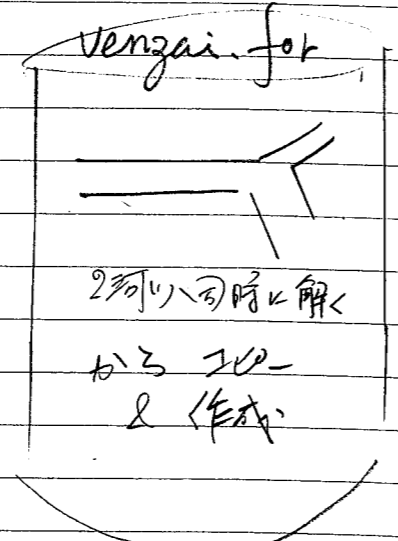 venzai.for
2河川同時に解く
から コピー
& 作成